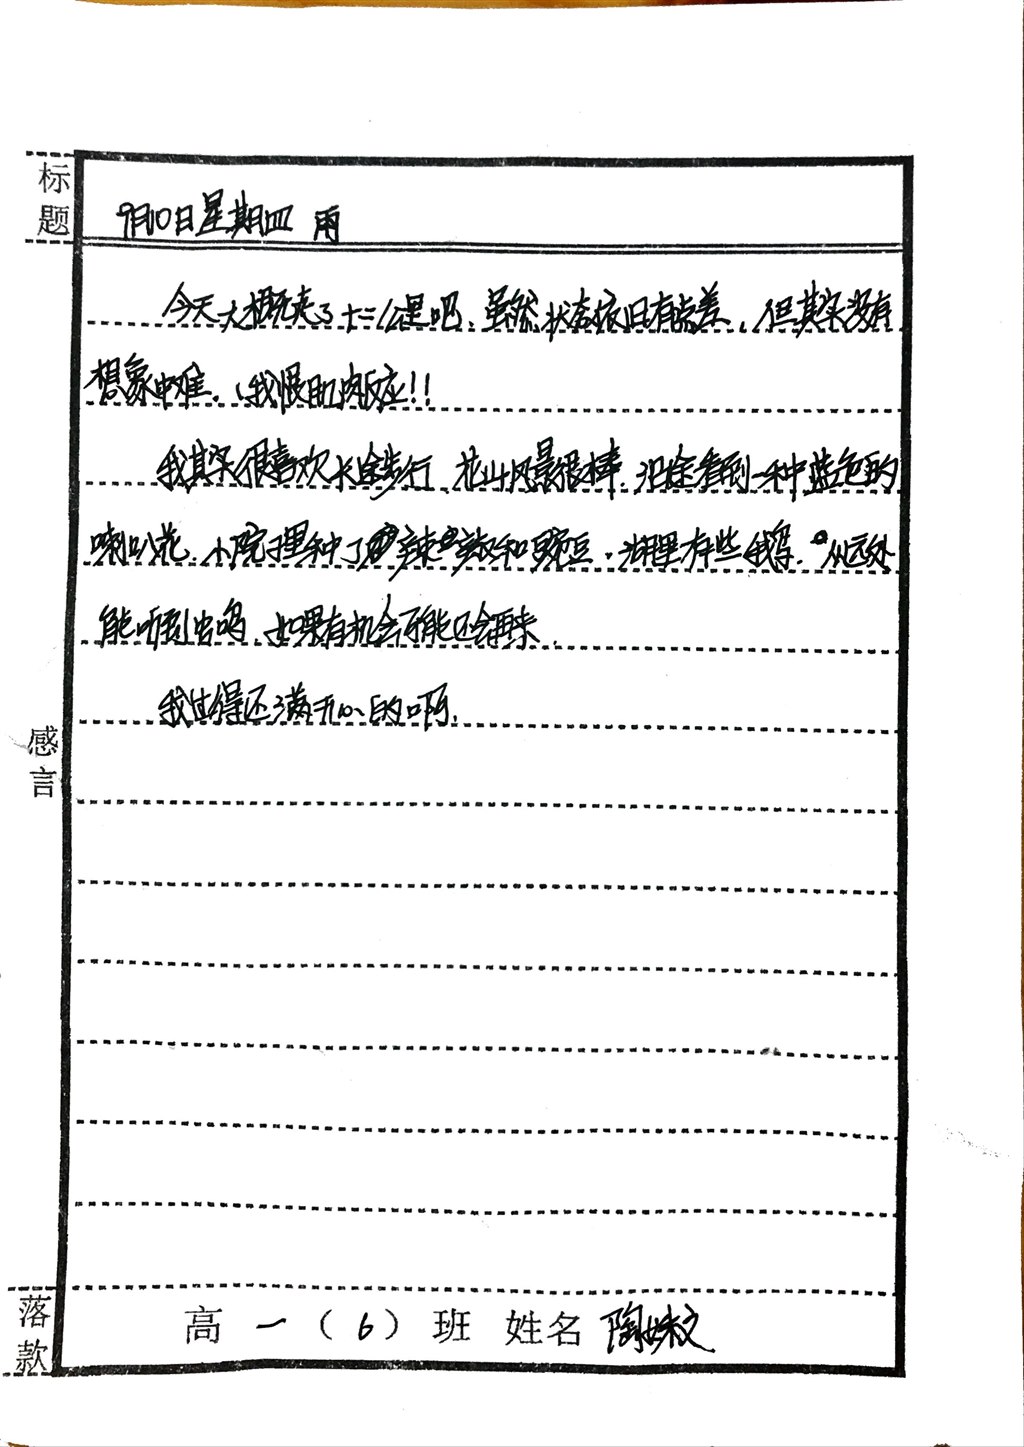 标题
9月10日星期四 雨
今天大概走了十二公里吧,虽然状态依旧有点差,但其实没有
想象中难。(我恨肌肉反应!!
我其实很喜欢长途步行,花山风景很棒,沿途看到一种蓝色的
喇叭花,小院子里种了辣椒和豌豆,湖里有些鹅,从远处
能听到鸟鸣,如果有机会可能还会再来.
我过得还满开心的啊.
感言
落款
高一(6)班 姓名 陶姝文